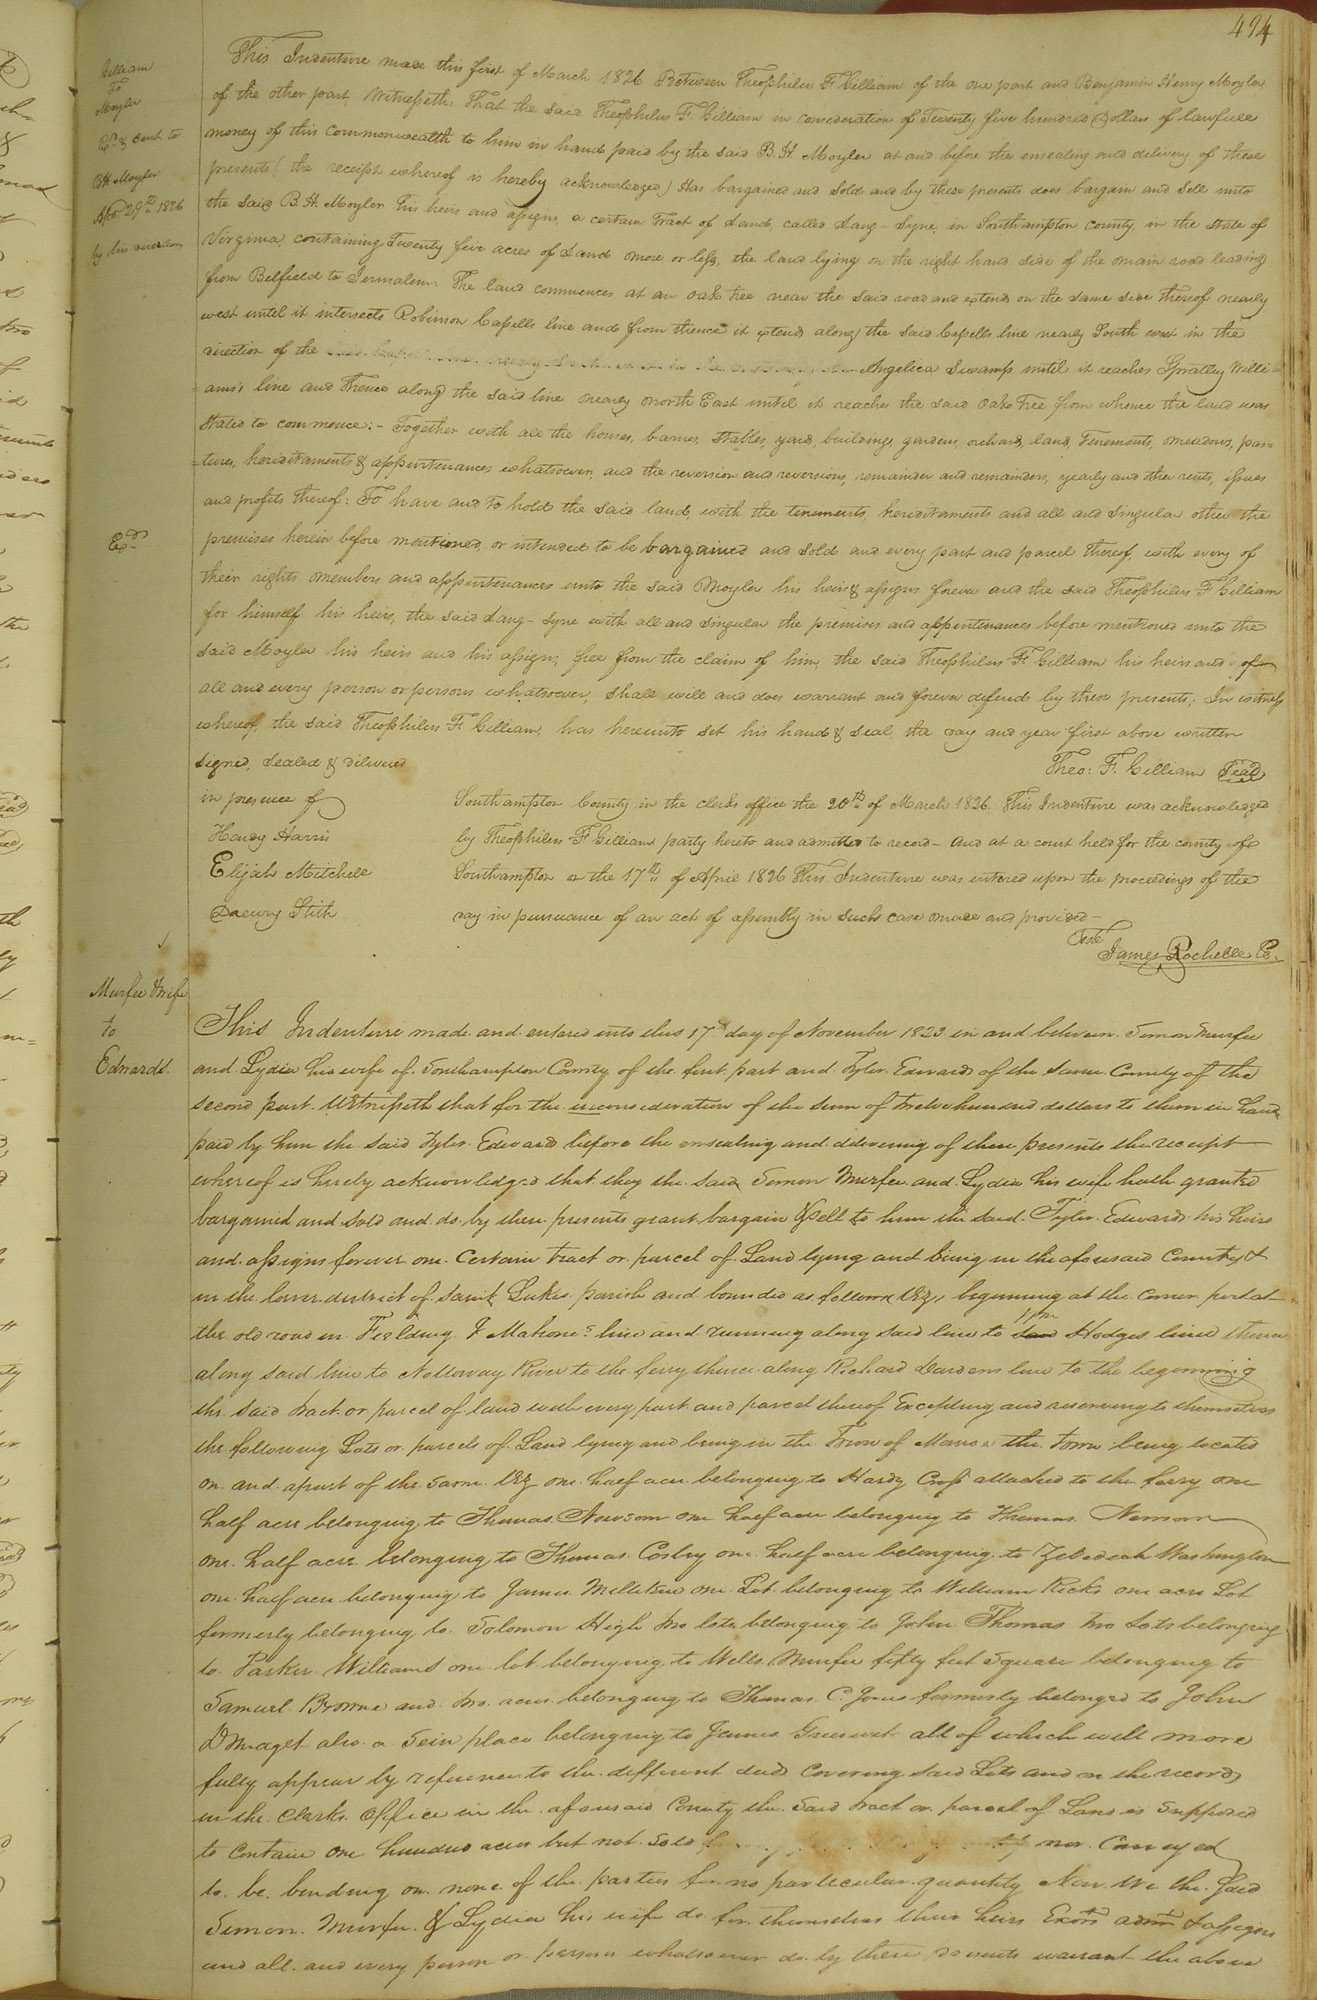 494
Gilliam
To
Moyler
Exd & sent to
BH Moyler
Apr 29th 1826
by his direction
This Indenture made this first of March 1826 Between Theophilus F Gilliam of the one part and Benjamin Henry Moyler
of the other part Witnesseth: That the said Theophilus F. Gilliam in consideration of Twenty five hundred Dollars of lawfull
money of this commonwealth to him in hand paid by the said B. H Moyler at and before the ensealing and delivery of these
presents (the receipt whereof is hereby acknowledged) Has bargained and sold and by these presents does bargain and sell unto
the said B. H. Moyler his heirs and assigns, a certain Tract of Land, called Lang-Syne, in Southampton county, in the State of
Virginia, containing Twenty five acres of Land more or less, the land lying on the right hand side of the main road leading
from Belfield to Jerusalem: The land commences at an oak tree near the said road and extends on the same side thereof nearly
west until it intersects Robinson Capells line and from thence it extends along the said Capells line nearly South west in the
direction of the Angelica Swamp until it reaches Spratley Willi=
=ams line and Thence along the said line nearly north East until it reaches the said Oak Tree from whence the land was
stated to commence:- Together with all the houses, barns, stables, yards, buildings, gardens, orchards, land, Tenements, meadows, pas=
=tures, hereditaments & appurtenances whatsoever, and the reversion and reversions, remainder and remainders, yearly and other rents, issues
and profits thereof: To have and To hold the said land, with the tenements, hereditaments and all and singular other the
Exd
premises herein before mentioned, or intended to be bargained and sold and every part and parcel thereof, with every of
their rights members and appurtenances unto the said Moyler his heirs & assigns forever and the said Theophilus F Gilliam
for himself his heirs, the said Lang-Syne with all and singular the premises and appurtenances before mentioned unto the
said Moyler his heirs and his assigns, free from the claim of him, the said Theophilus F. Gilliam his heirs and of
all and every person or persons whatsoever, shall will and does warrant and forever defend by these presents; In witness
whereof, the said Theophilus F. Gilliam, has hereunto set his hand & seal, the day and year first above written
Signed, Sealed & delivered
Theo: F. Gilliam Seal
in presence of
Hardy Harris
Elijah Mitchell
Drewry Stith
Southampton County in the clerks office the 20th of March 1826. This Indenture was acknowledged
by Theophilus F Gilliam party hereto and admitted to record - and at a court held for the county of
Southampton on the 17th of April 1826 This Indenture was entered upon the proceedings of the
day in pursuance of an act of assembly in such case made and provided -
Teste
James Rochelle Cc.
Murfee & wife
to
Edwards
This Indenture made and entered into this 17th day of November 1823 in and between Simon Murfee
and Lydia his wife of Southampton County of the first part and Tyler Edwards of the same County of the
second part Witnesseth that for the inconsideration of the sum of twelve hundred dollars to them in hand
paid by him the said Tyler Edwards before the ensealing and delivering of these presents the receipt
whereof is hereby acknowledged that they the said Simon Murfee and Lydia his wife hath granted
bargained and sold and do by these presents grant bargain & sell to him the said Tyler Edwards his heirs
and assigns forever one Certain tract or parcel of Land lying and being in the aforesaid County &
in the lower district of Saint Lukes parish and bounded as follows Viz, beginning at the corner post at
the old road in Fielding J Mahone's line and running along said line to said Hodges line thence
along said line to Nottoway River to the ferry thence along Richard Dardens line to the beginning
the said tract or parcel of land with every part and parcel thereof Excepting and reserving to themselves
the following Lots or parcels of Land lying and being in the Town of Monroe the town being located
on and apart of the same Viz one half acre belonging to Hardy Cross attached to the ferry one
half acre belonging to Thomas Newsom one half acre belonging to Thomas Newsom
one half acre belonging to Thomas Cosby one half acre belonging to Zebedeah Washington
one half acre belonging to James Millikin one Lot belonging to William Ricks one acre Lot
formerly belonging to Solomon High two lots belonging to John Thomas two Lots belonging
to Parker Williams one lot belonging to Wells Murfee fifty feet Square belonging to
Samuel Browne and two acres belonging to Thomas C. Jones formerly belonged to John
D Maget also a Sein place belonging to James all of which will more
fully appear by reference to the different deeds Covering said Lots and on the records
in the Clerks Office in the aforesaid County the Said tract or parcel of Land is Supposed
to Contain one hundred acres but not sold nor Conveyed
to be binding on none of the parties for no particular quantity Now We the Said
Simon Murfee & Lydia his wife do for themselves their heirs Exors admrs & assigns
and all and every person or persons whatsoever do by these presents warrant the above